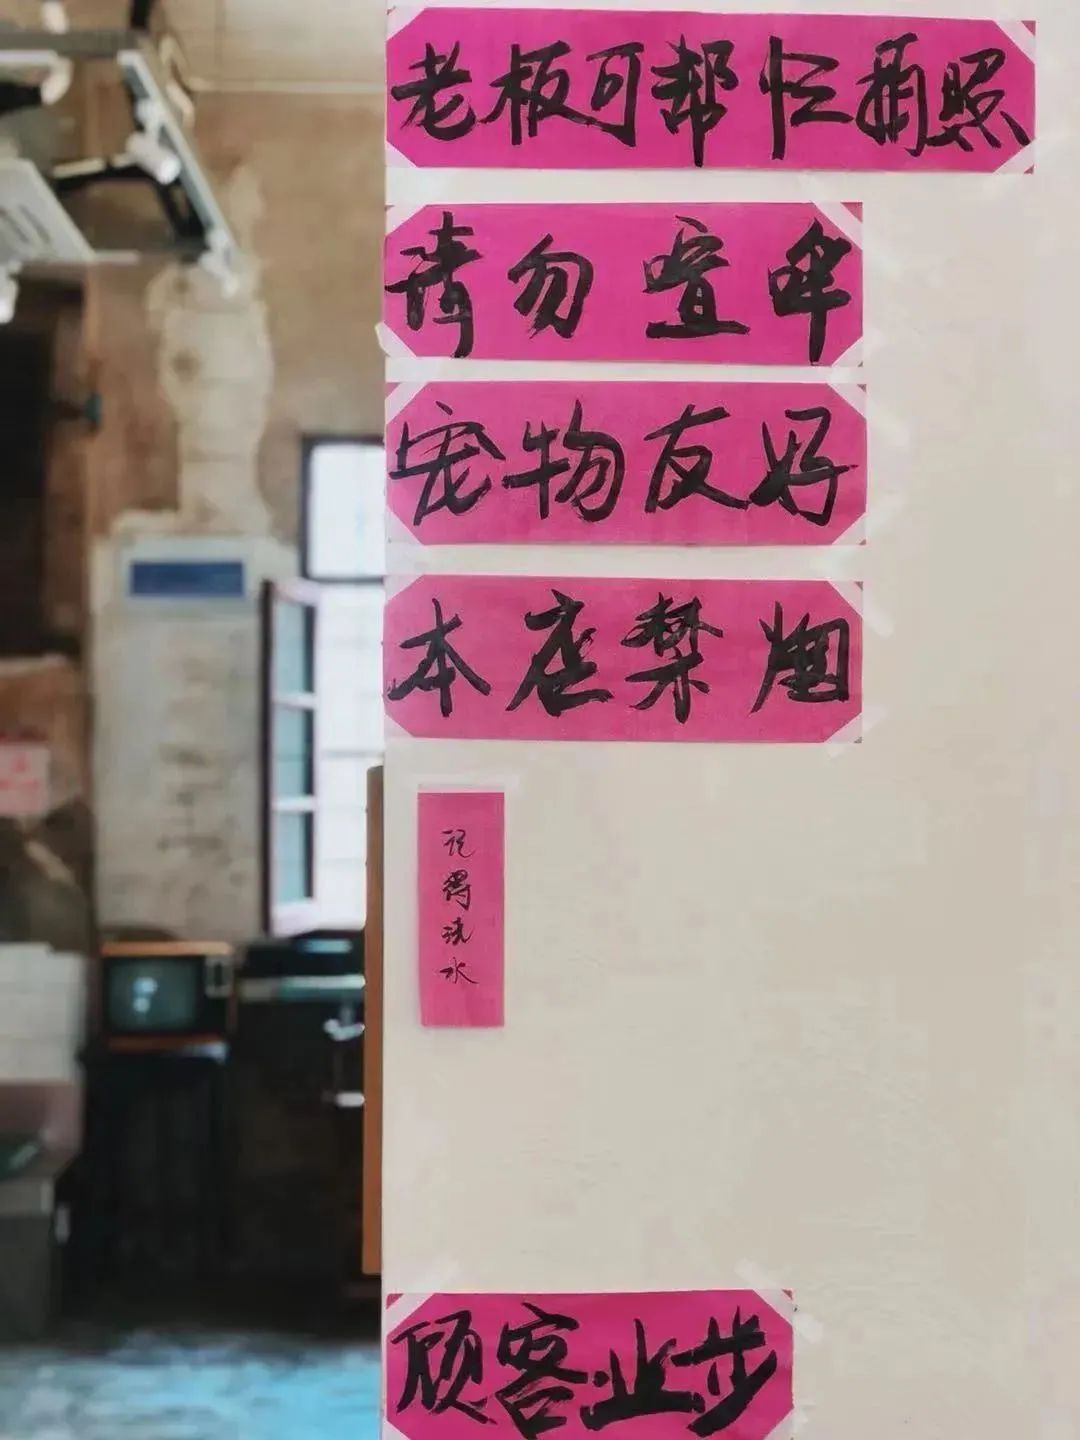 老板可帮忙拍照
请勿喧哗
宠物友好
本座禁烟
记得浇水
顾客止步